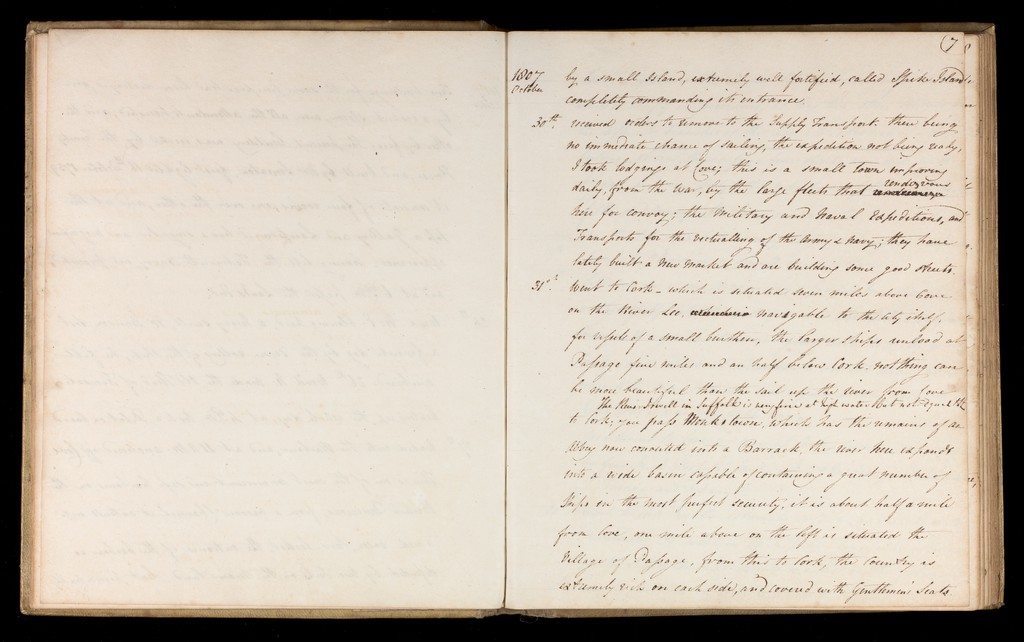 7
1807
October
by a small Island, extremely well fortified, called Spike Island
completely commanding its entrance.
30th. received orders to remove to the Supply Transport. there being
no immediate chance of sailing, the expedition not being ready,
I took lodgings at Cove; this is a small town improving
daily, from the War, by the large fleets that rendezvous
here for convoy; the Military and Naval Expeditions, and
Transports for the victualling of the Army & Navy; they have
lately built a New Market and are building some good streets.
31st. Went to Cork - which is situated seven miles above Cove
on the River Lee. navigable to the City itself,
for vessels of a small burthen, the larger ships unload at
Passage five miles and an half below Cork. nothing can
be more beautiful than the sail up the river from Cove
The River Orwell in Suffolk is very fine at high water but not equal to
to Cork; you pass Monkstown, which has the remains of an
Abey now converted into a Barrack, the river here expands
into a wide basin capable of containing a great number of
Ships in the most perfect security; it is about half a mile
from Cove, one mile above on the left is situated the
Village of Passage, from this to Cork, the Country is
extremely rich on each side, and covered with Gentlemens Seats.